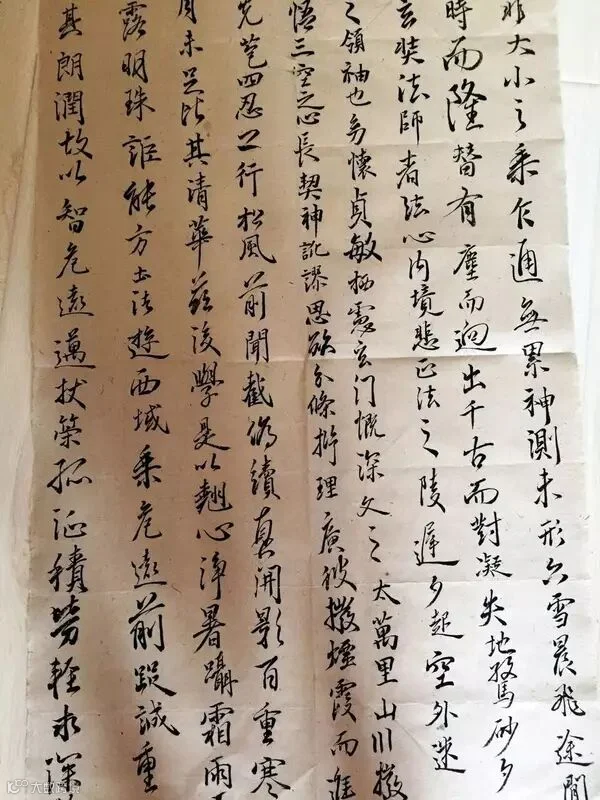 非大小之乘乍通無累神測未形六雪晨飛途間
時而隆替有塵而迥出千古而對凝失地驚砂夕
玄奘法師者法心內境悲正法之陵遲夕起空外迷
之領袖也幼懷貞敏栖慮玄门慨深文之太萬里山川撥
悟三空之心長契神訛謬思欲分條析理廣彼撥煙霞而進
先苞四忍之行松風前聞截偽續真開影百重寒
月未足比其清華茲後學是以翹心淨暑躡霜雨
露明珠詎能方土法遊西域乘危遠前蹤誠重
其朗潤故以智危遠邁杖策孤征積勞輕求深